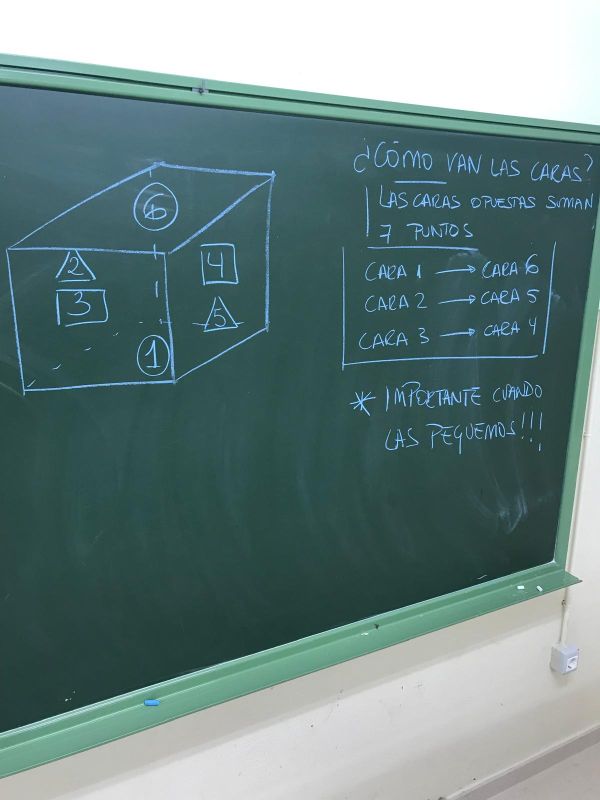 ¿CÓMO VAN LAS CARAS?
LAS CARAS OPUESTAS SUMAN
7 PUNTOS
CARA 1 → CARA 6
CARA 2 → CARA 5
CARA 3 → CARA 4
* IMPORTANTE CUANDO
LAS PEGUEMOS!!!
6
2
4
3
5
1